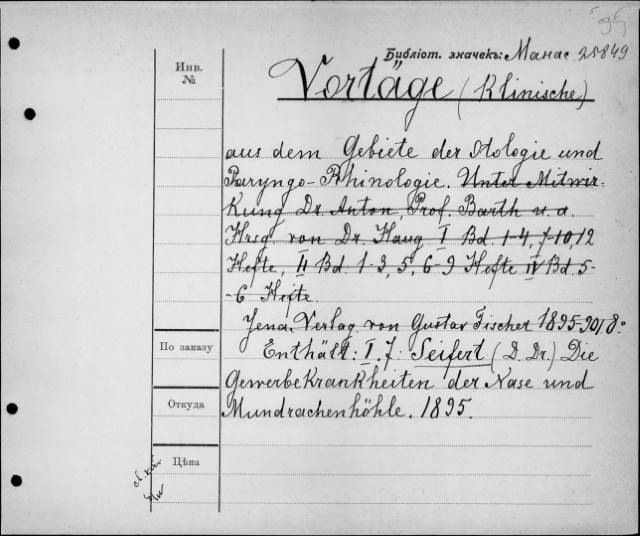 95
Библіот. значекъ: Манас. 25849
Инв.
№
Vortäge (Klinische)
aus dem Gebiete der Otologie und
Paryngo-Rhinologie. Unter Mitwir-
kung Dr. Anton, Prof. Barth u.a.
Hrsg. von Dr. Haug I Bd. 1-4, 7-10, 12
Hefte, II Bd. 1-3, 5, 6-9 Hefte IV Bd. 5-
-6 Hefte.
Jena. Verlag von Gustav Fischer 1895-901 8°
По заказу
Enthält: I. 7. Seifert (D. Dr.) Die
Gewerbekrankheiten der Nase und
Откуда
Mundrachenhöhle. 1895.
Цѣна